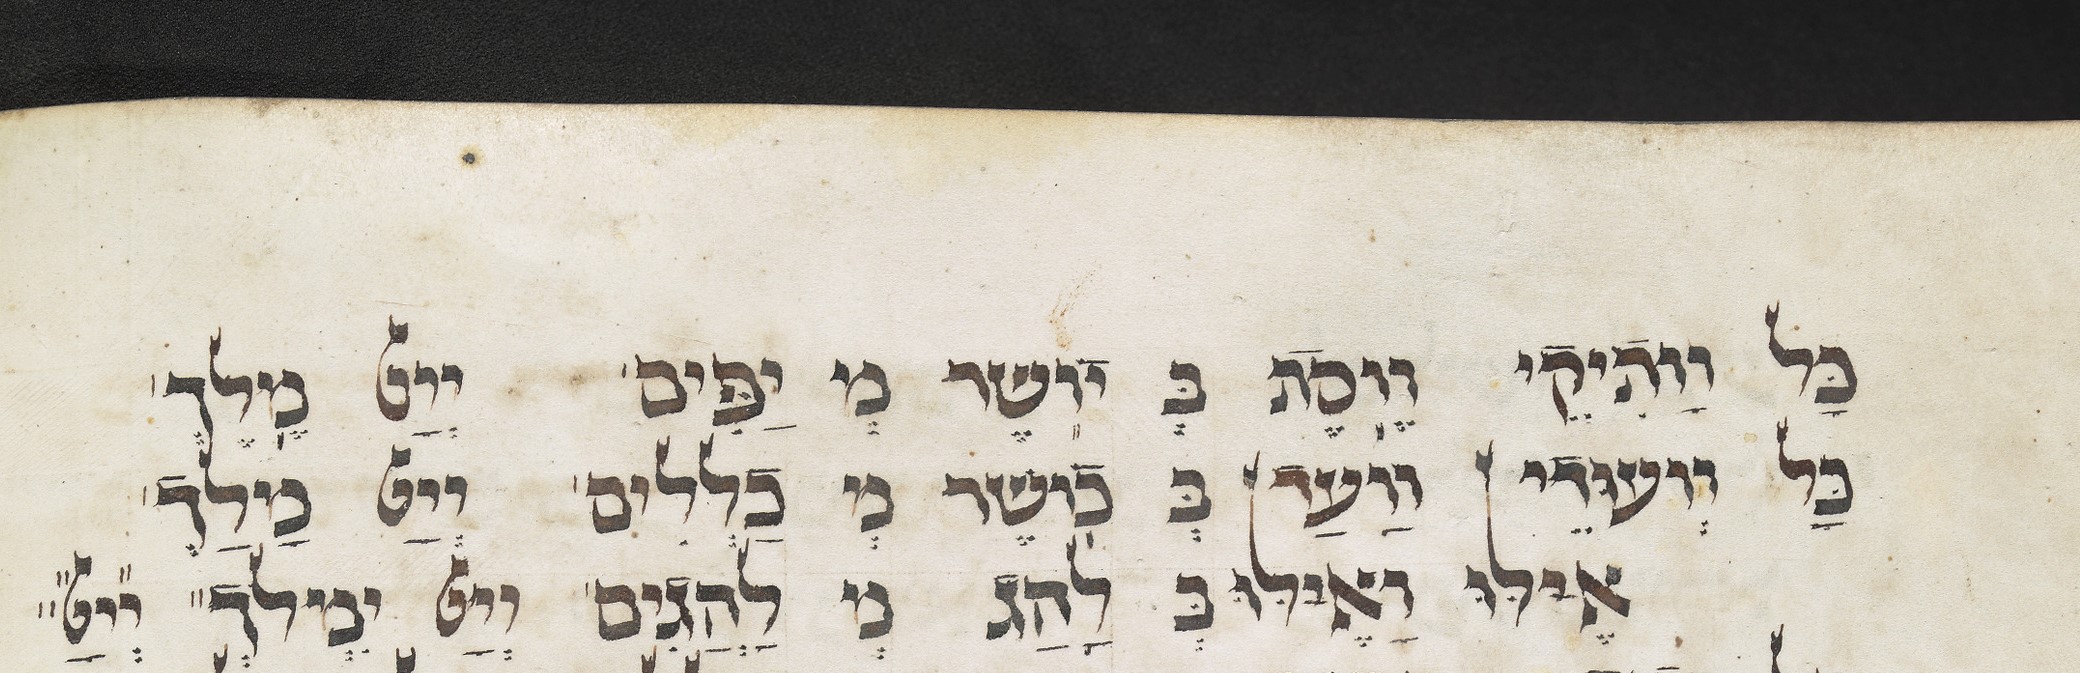 כָּל וַותִיקֵי וֶוסֶת בְּ יוֹשֶר מְ יַפִּים׳ יְיַט מֶלֶךְ׳
כָּל וְועוּדֵי וַועַד בְּ כוֹשֶר מְ כַלְלִים׳ יְיַט מַלַךְ׳
אֵילוּ וָאֵילוּ בְּ לַהַג מְ לַהֲגִים׳ יְיַט יִמְלךְ״ יְיַט״